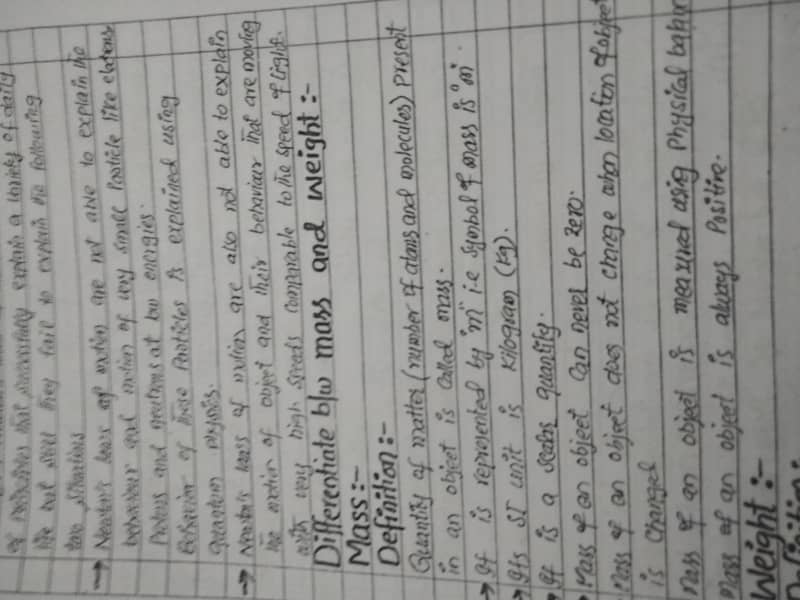 of daily
life but still they fail to explain the following
two situations
→ Newton's laws of motion are not able to explain the
behaviour and motion of very small particle like electrons
Protons and neutrons at low energies.
Behavior of these Particles is explained using
quantum physics.
→ Newton's laws of motion are also not able to explain
the motion of object and their behaviour that are moving
with very high speeds comparable to the speed of light.
Differentiate b/w mass and weight :-
Mass :-
Definition :-
Quantity of matter (number of atoms and molecules) Present
in an object is called mass.
→ It is represented by "m" i.e symbol of mass is "m".
→ Its SI unit is Kilogram (kg).
→ It is a scalar quantity.
→ Mass of an object can never be zero.
Mass of an object does not change when location of object
is changed
Mass of an object is measured using Physical balan
Mass of an object is always Positive.
Weight :-